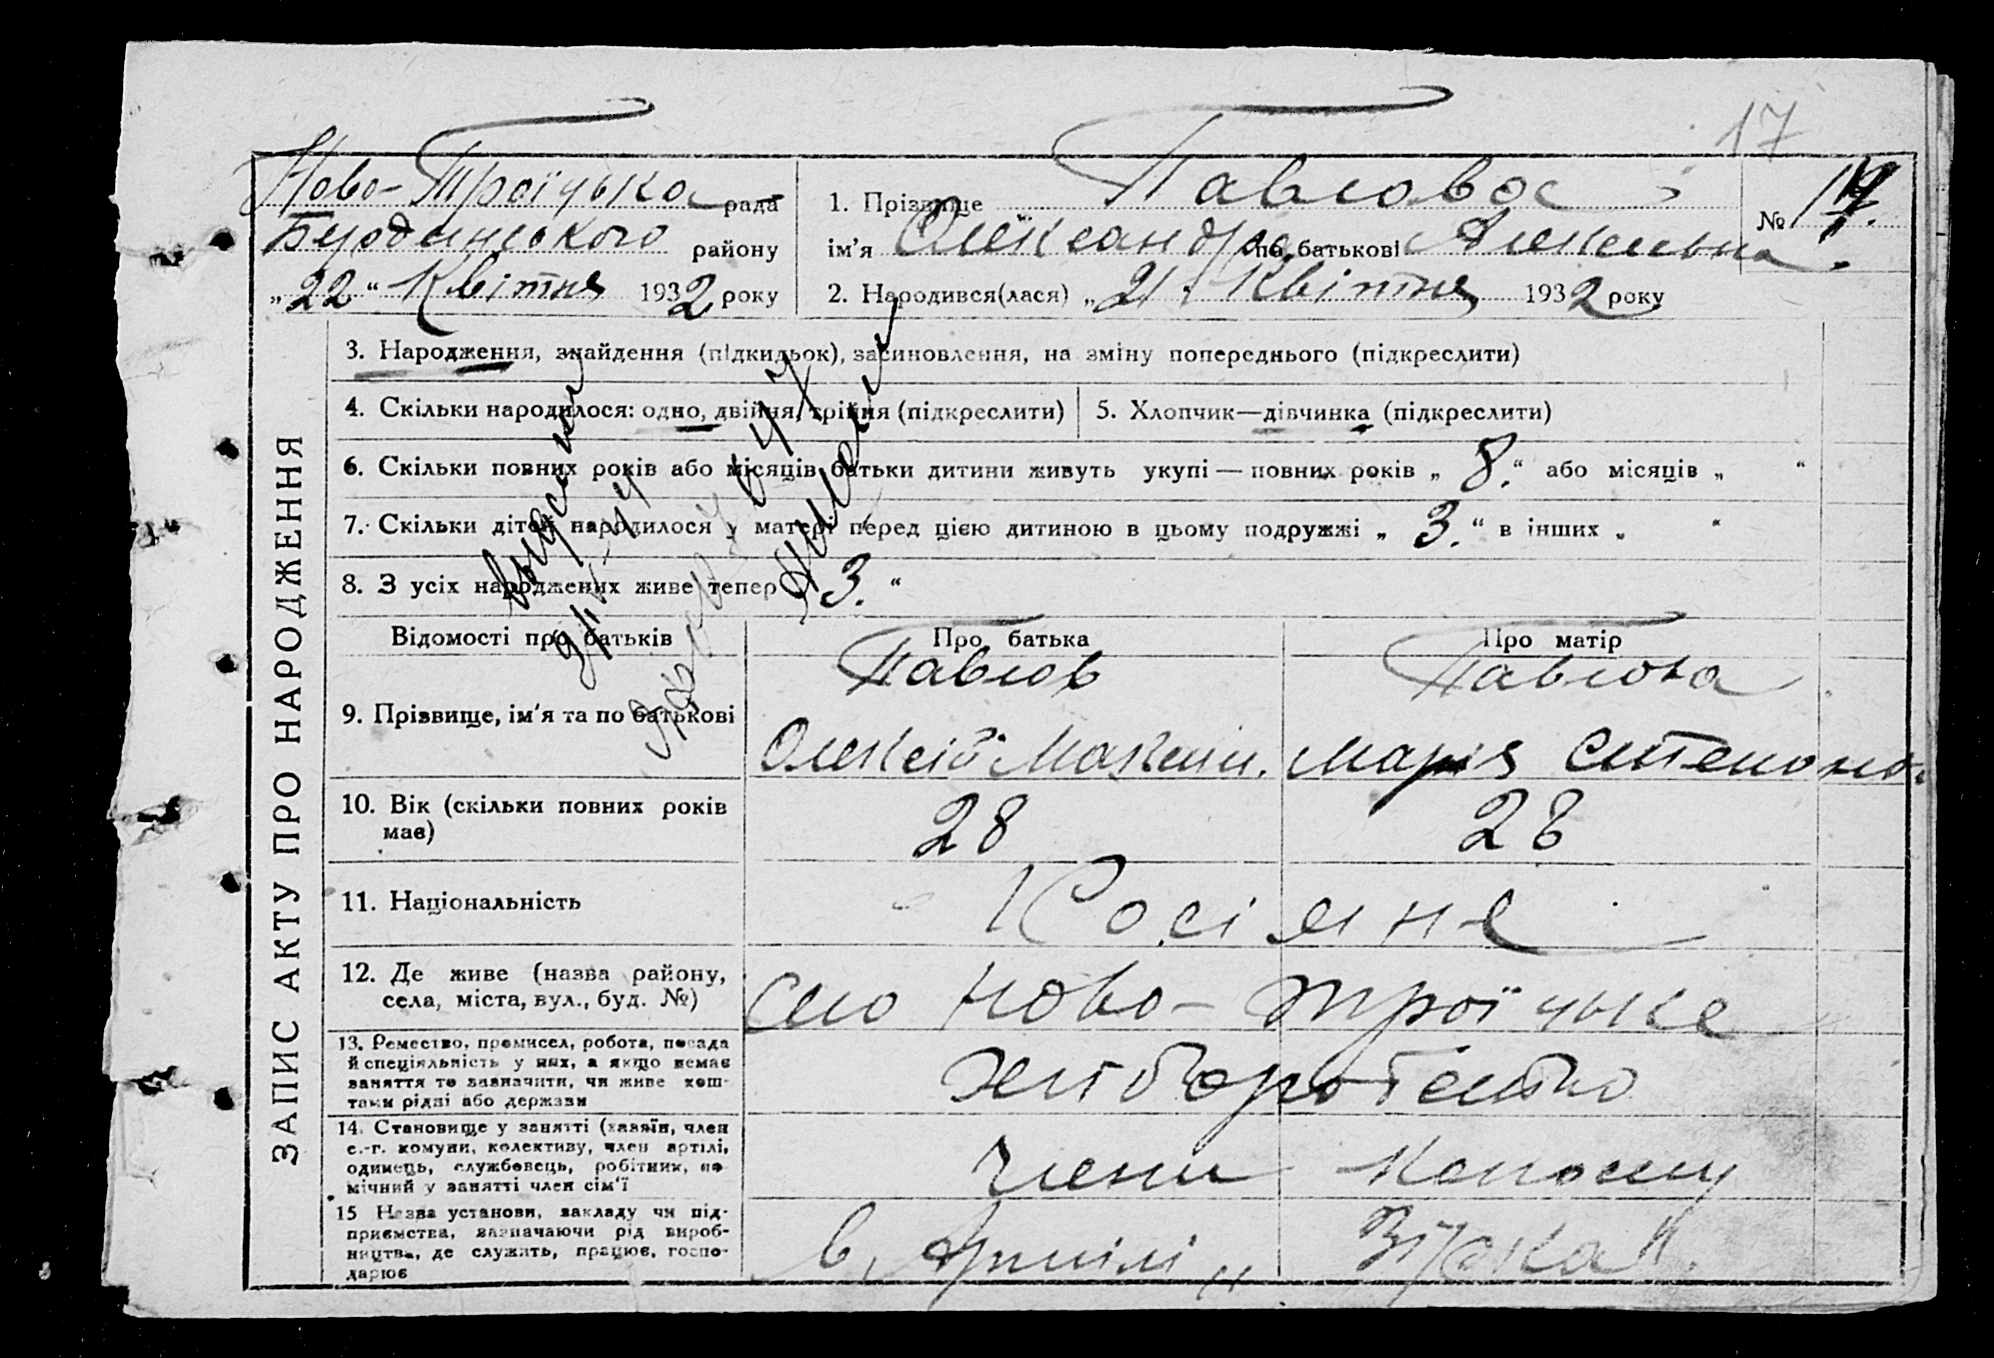 17
Ново-Троїцька рада
Бердянського району
„22“ Квітня 1932 року
1. Прізвище Павлова
ім'я Олександра по батькові Алексеевна
№ 17.
2. Народився(лася) „21“ Квітня 1932 року
ЗАПИС АКТУ ПРО НАРОДЖЕННЯ
3. Народження, знайдення (підкидьок), засиновлення, на зміну попереднього (підкреслити)
4. Скільки народилося: одно, двійня, трійня (підкреслити)
5. Хлопчик—дівчинка (підкреслити)
6. Скільки повних років або місяців батьки дитини живуть укупі — повних років „8.“ або місяців „ “
7. Скільки дітей народилося у матері перед цією дитиною в цьому подружжі „3.“ в інших „ “
8. З усіх народжених живе тепер „3.“
Відомості про батьків
Про батька
Про матір
9. Прізвище, ім'я та по батькові
Павлов
Олексій Максим.
Павлова
Марія Степонов.
10. Вік (скільки повних років має)
28
28
11. Національність
Росіяне
12. Де живе (назва району,
села, міста, вул., буд. №)
село Ново-Троїцьке
13. Ремество, промисел, робота, посада
й спеціяльність у них, а якщо немає
заняття то зазначити, чи живе кош-
тами рідні або держави
хліборобство
14. Становище у занятті (хазяїн, член
с.-г. комуни, колективу, член артілі,
одинець, службовець, робітник, по-
мічний у занятті член сім'ї
члени колоспу
15 Назва установи, закладу чи під-
приємства, зазначаючи рід вироб-
ництва, де служить, працює, госпо-
дарює
в Артілі „Зірка“.